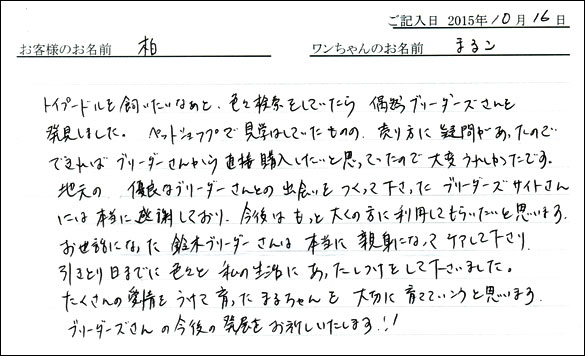 ご記入日 2015年10月16日
お客様のお名前 柏 ワンちゃんのお名前 まるこ
トイプードルを飼いたいなあと、色々検索をしていたら 偶然ブリーダーズさんを
発見しました。 ペットショップで見学はしていたものの、売り方に疑問があったので
できれば ブリーダーさんから直接購入したいと思っていたので大変うれしかったです。
地元の 優良なブリーダーさんとの出会いをつくって下さった ブリーダーズサイトさん
には本当に感謝しており、今後はもっと多くの方に利用してもらいたいと思います。
お世話になった 鈴木ブリーダーさんは 本当に親身になってケアして下さり
引きとり日までに色々と 私の生活にあったしつけをして下さいました。
たくさんの愛情をうけて育ったまるちゃんを 大切に育てていこうと思います。
ブリーダーズさんの今後の発展をお祈りいたします!!